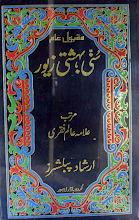 مقبول عام
سنی بہشتی زیور
مرتب
علامہ عالم فقری
ارشاد پبلشرز